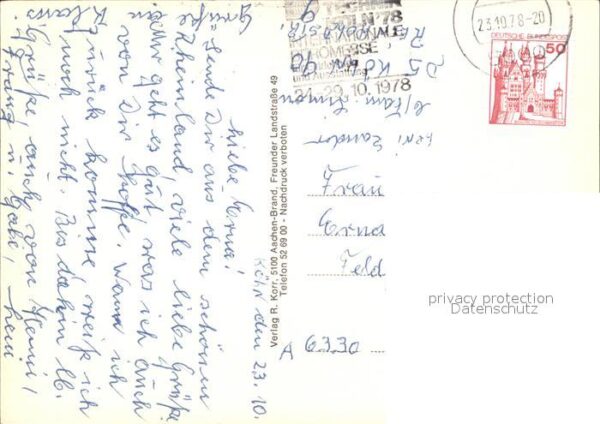 Köln den 23.10.
Liebe Erna!
Sende Dir aus dem schönen
Rheinland, viele liebe Grüße
Mir geht es gut, was ich auch
von Dir hoffe. Wann ich
zurück komme weiß ich
noch nicht. Bis dahin lb.
Grüße auch von Heini,
Franz u. Gabi,
Klaus.
Verlag R. Korr, 5100 Aachen-Brand, Freunder Landstraße 49
Telefon 52 69 00 - Nachdruck verboten
KÖLN '78
24.-29.10.1978
23.10.78-20
DEUTSCHE BUNDESPOST
50
Frau
Erna
Feld
A 6330
privacy protection
Datenschutz